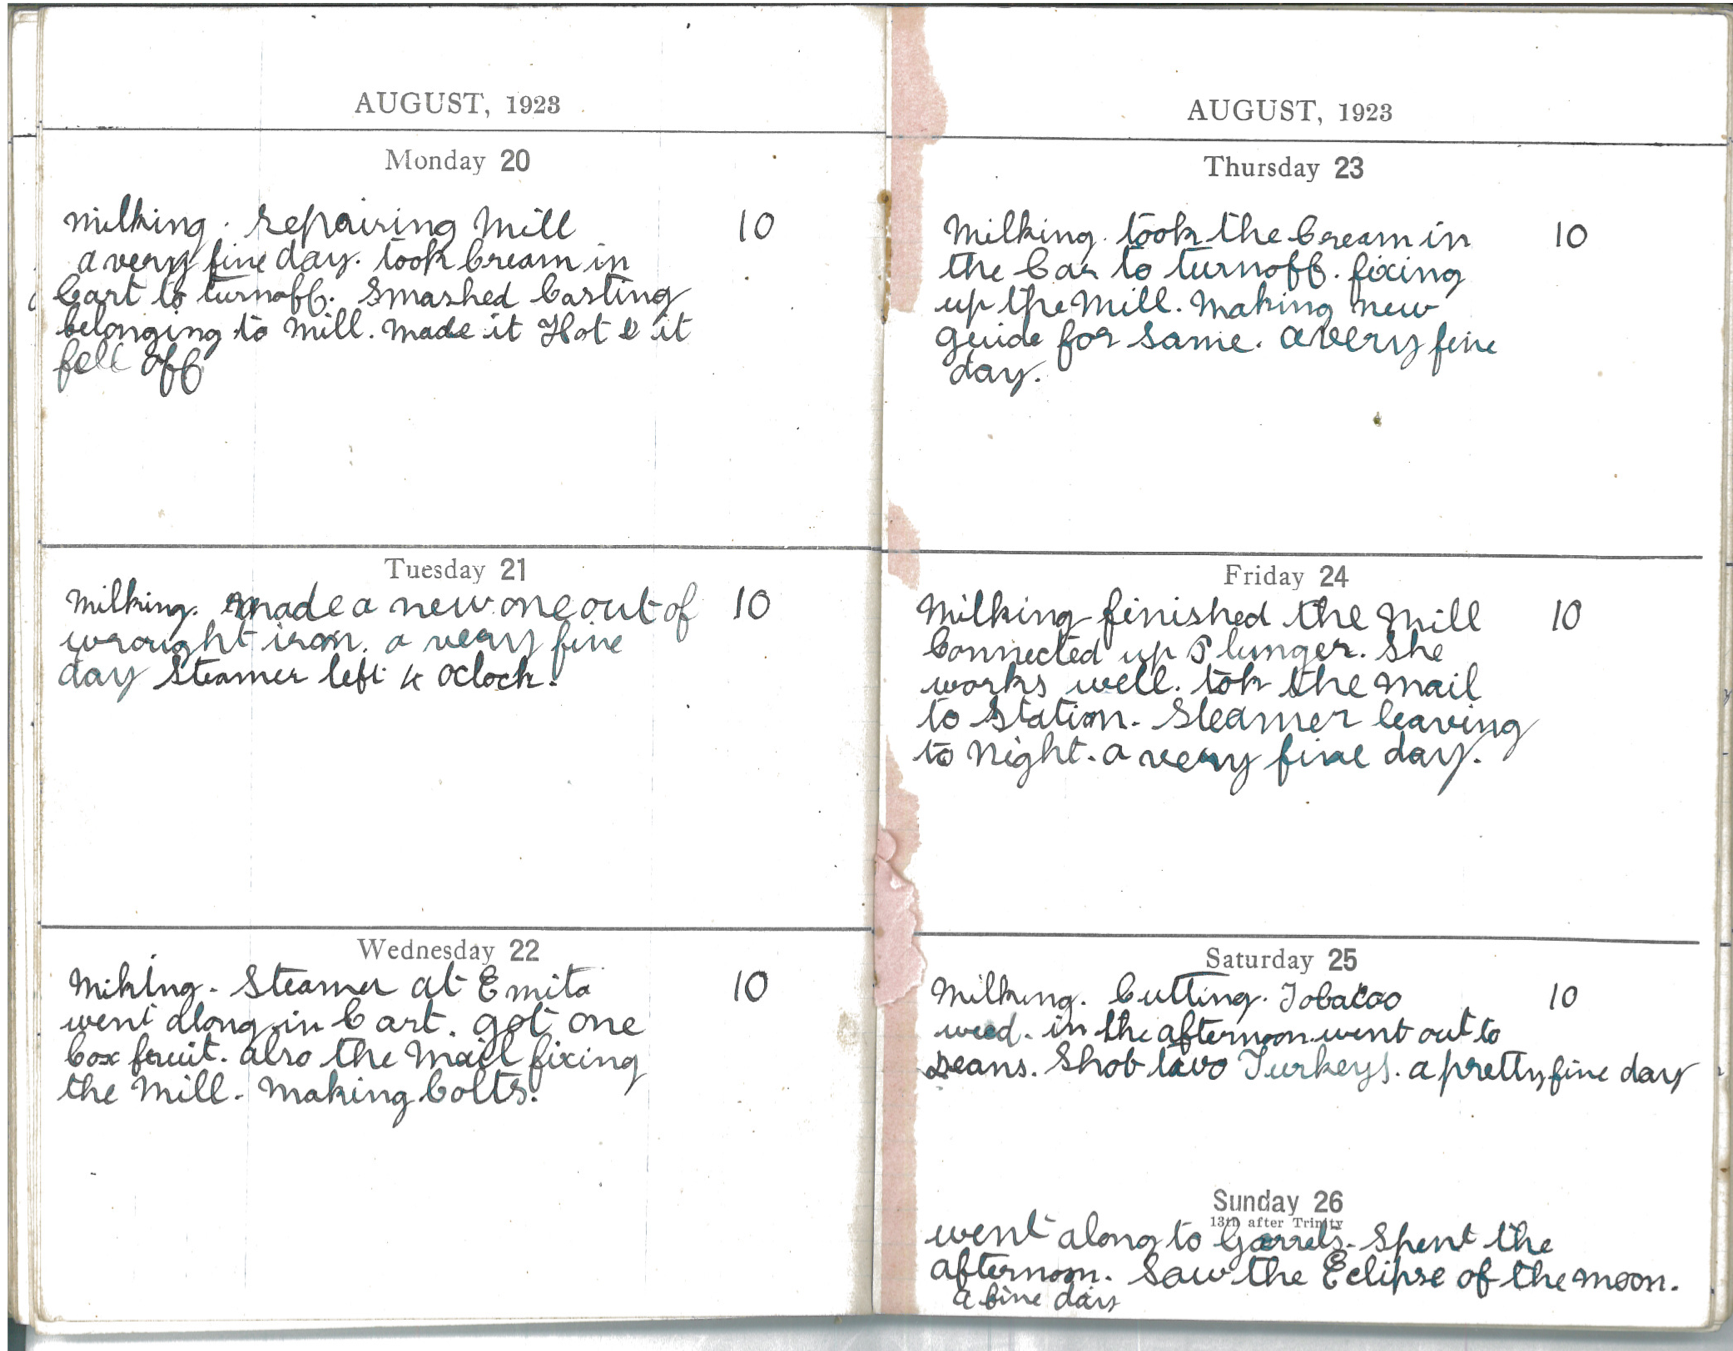 AUGUST, 1923
Monday 20
Milking. repairing Mill 10
a very fine day. took Cream in
Cart to turnoff. Smashed Casting
belonging to Mill. Made it Hot & it
fell off
Tuesday 21
Milking. made a new one out of 10
wrought iron. a very fine
day Steamer left 4 oclock.
Wednesday 22
Miking. Steamer at Emita 10
went along in Cart. got one
box fruit. also the Mail fixing
the Mill. Making bolts.
AUGUST, 1923
Thursday 23
Milking. took the Cream in 10
the Car to turnoff. fixing
up the Mill. Making new
guide for same. a very fine
day.
Friday 24
Milking finished the Mill 10
Connected up Plunger. She
works well. tok the mail
to Station. Steamer leaving
to Night. a very fine day.
Saturday 25
Milking. Cutting. Tobacco 10
weed. in the afternoon went out to
Seans. Shot two Turkeys. a pretty fine day
Sunday 26
13th after Trinity
went along to Garrels. Spent the
afternoon. Saw the Eclipse of the moon.
a fine day